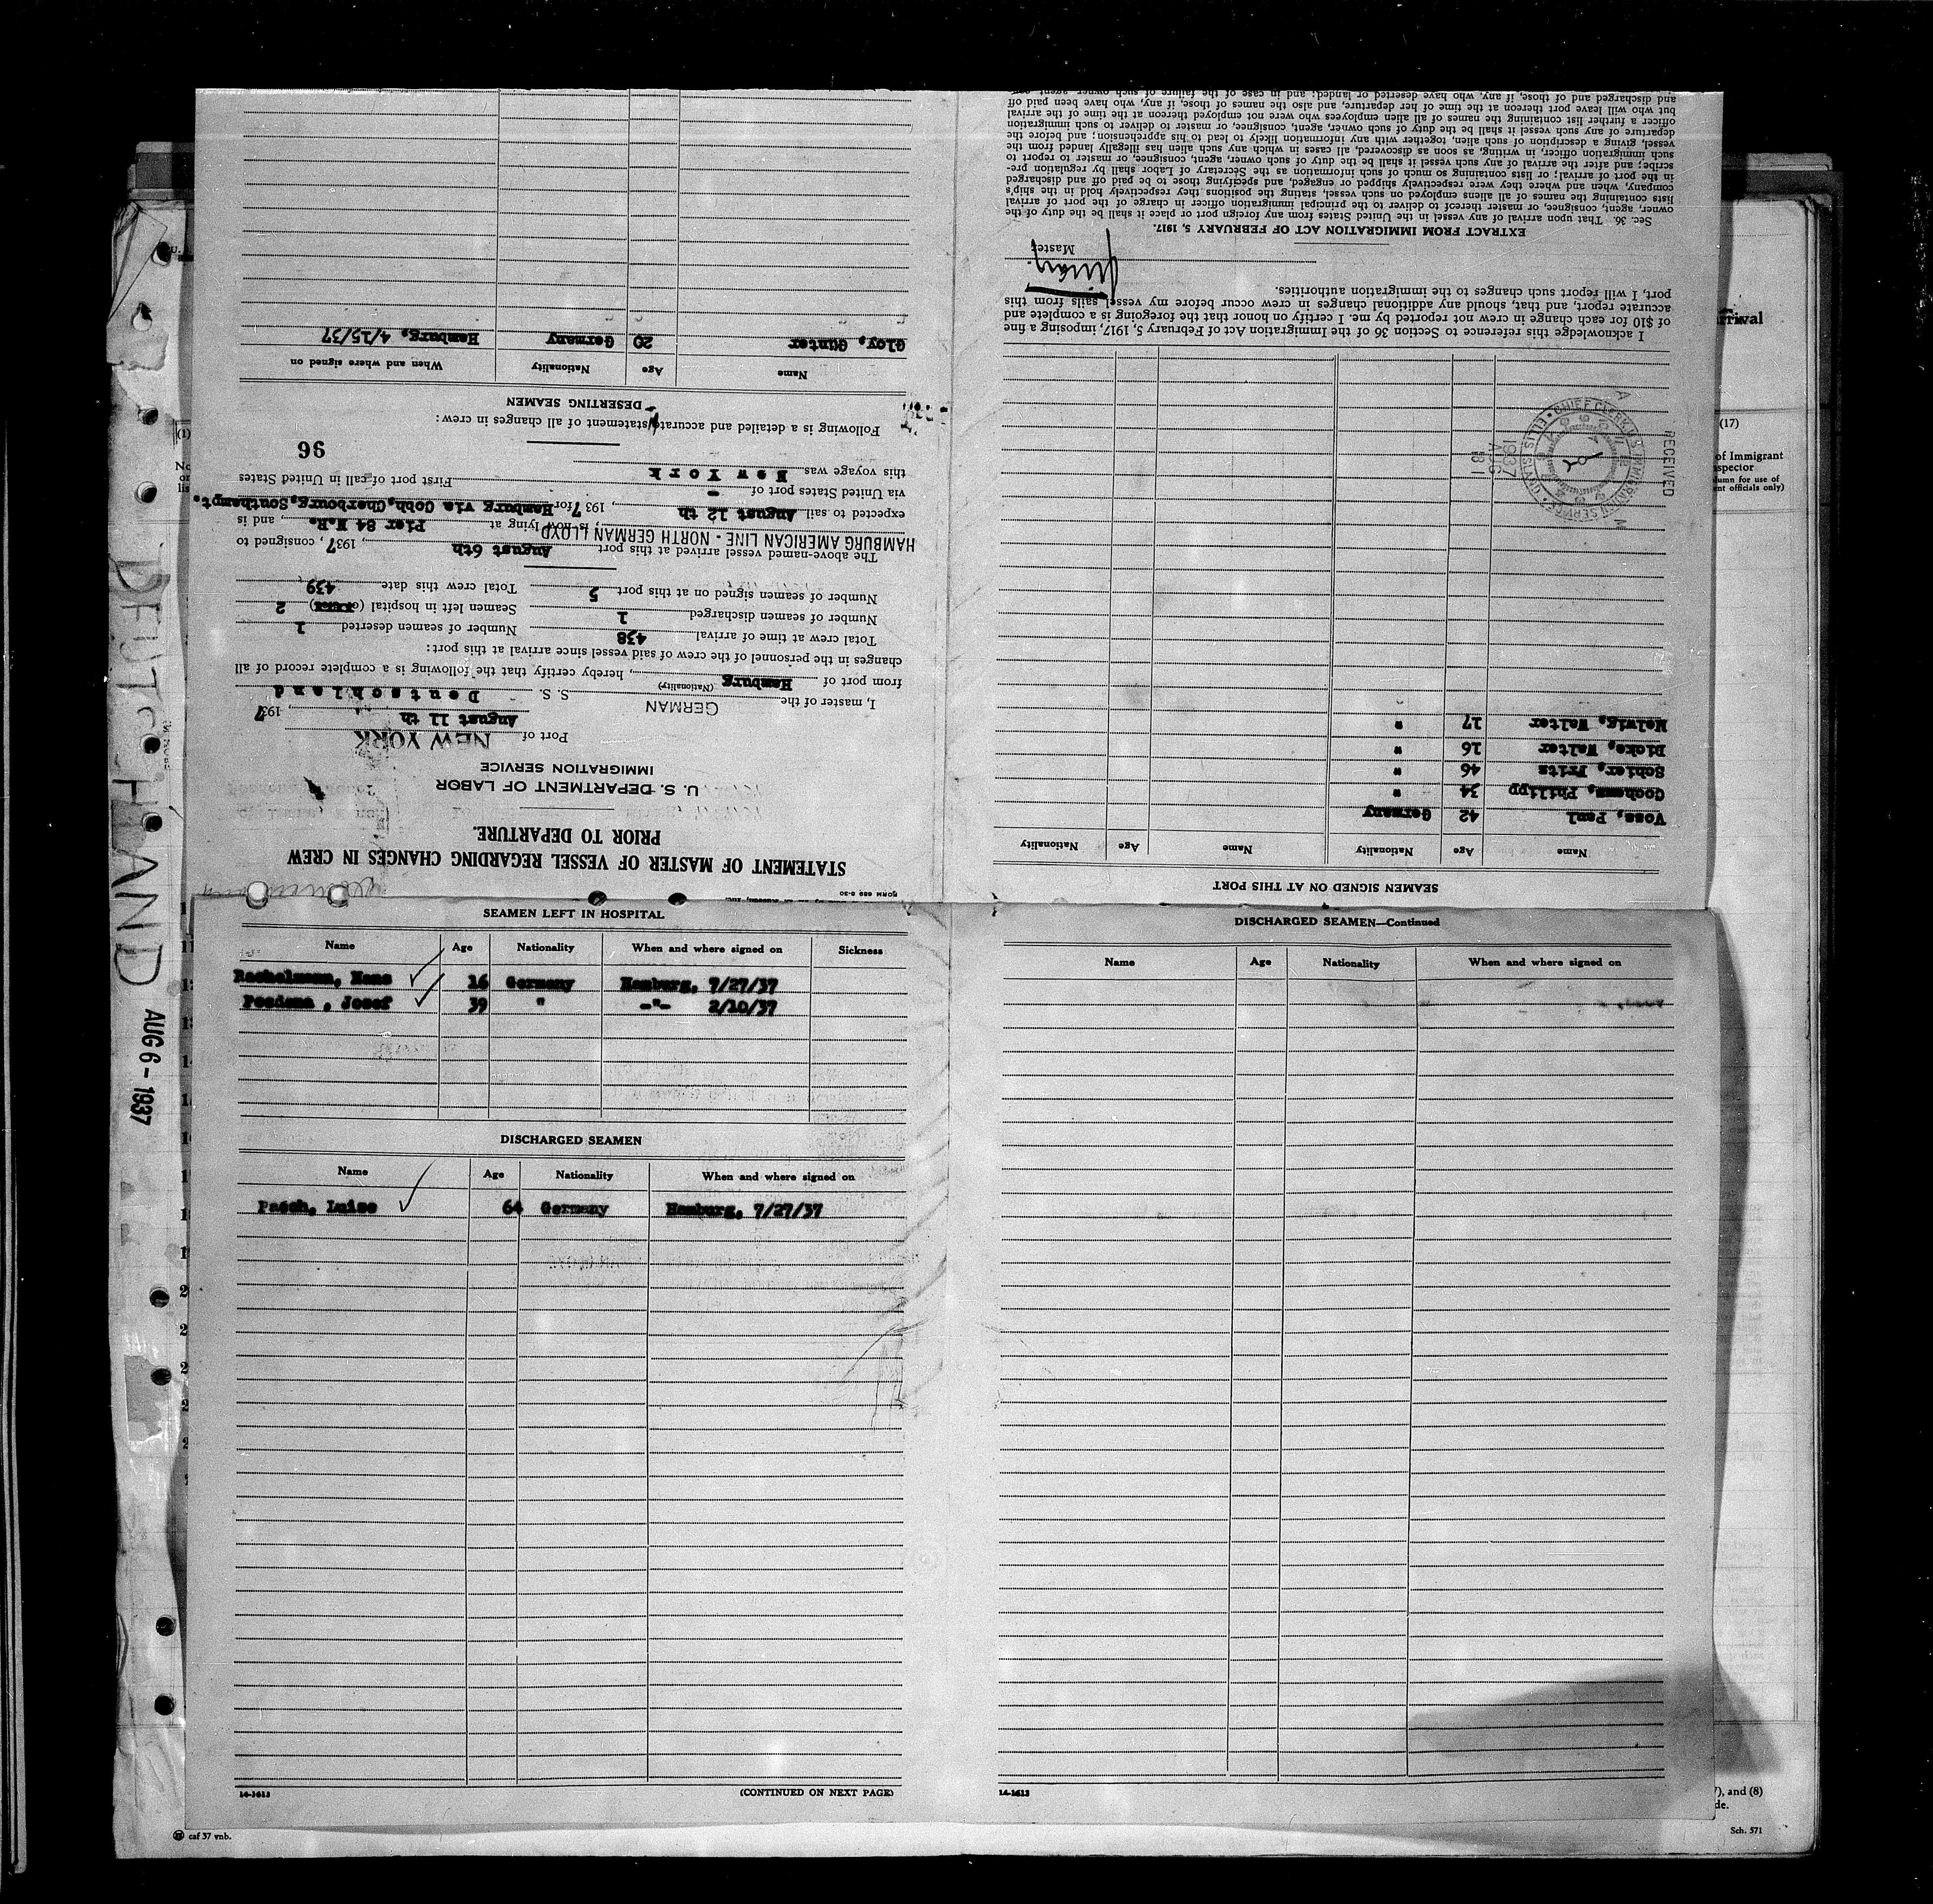 FORM 689 8-30
STATEMENT OF MASTER OF VESSEL REGARDING CHANGES IN CREW
PRIOR TO DEPARTURE.
U. S. DEPARTMENT OF LABOR
IMMIGRATION SERVICE
Port of NEW YORK
August 11 th, 1937
I, master of the GERMAN S. S. Deutschland
(Nationality)
from port of Hamburg, hereby certify that the following is a complete record of all
changes in the personnel of the crew of said vessel since arrival at this port:
Total crew at time of arrival 438 Number of seamen deserted 1
Number of seamen discharged 1 Seamen left in hospital 2
Number of seamen signed on at this port 5 Total crew this date 439
The above-named vessel arrived at this port August 6th, 1937, consigned to
HAMBURG AMERICAN LINE - NORTH GERMAN LLOYD; is now lying at Pier 84 N.R., and is
expected to sail August 12 th, 1937 for Hamburg via Cobh, Cherbourg, Southampt.
via United States port of - First port of call in United States
this voyage was New York
96
Following is a detailed and accurate statement of all changes in crew:
DESERTING SEAMEN
Name Age Nationality When and where signed on
Gloy, Günter 20 Germany Hamburg, 4/15/37
SEAMEN LEFT IN HOSPITAL
Name Age Nationality When and where signed on Sickness
Hans 16 Germany Hamburg, 7/27/37
Josef 39 " -"- 2/10/37
DISCHARGED SEAMEN
Name Age Nationality When and where signed on
Pasch, Luise 64 Germany Hamburg, 7/27/37
14-1613 (CONTINUED ON NEXT PAGE)
DISCHARGED SEAMEN—Continued
Name Age Nationality When and where signed on
14-1613
SEAMEN SIGNED ON AT THIS PORT
Name Age Nationality Name Age Nationality
Voss, Paul 42 Germany
Cochems, Philipp 34 "
Schier, Fritz 46 "
Dicke, Walter 16 "
Walter 17 "
RECEIVED
1937 AUG
CHIEF CLERK, U.S. IMMIGRATION SERVICE
ELLIS ISLAND
A M
I acknowledge this reference to Section 36 of the Immigration Act of February 5, 1917, imposing a fine
of $10 for each change in crew not reported by me. I certify on honor that the foregoing is a complete and
accurate report, and that, should any additional changes in crew occur before my vessel sails from this
port, I will report such changes to the immigration authorities.
Master
EXTRACT FROM IMMIGRATION ACT OF FEBRUARY 5, 1917.
Sec. 36. That upon arrival of any vessel in the United States from any foreign port or place it shall be the duty of the
owner, agent, consignee, or master thereof to deliver to the principal immigration officer in charge of the port of arrival
lists containing the names of all aliens employed on such vessel, stating the positions they respectively hold in the ship's
company, when and where they were respectively shipped or engaged, and specifying those to be paid off and discharged
in the port of arrival; or lists containing so much of such information as the Secretary of Labor shall by regulation pre-
scribe; and after the arrival of any such vessel it shall be the duty of such owner, agent, consignee, or master to report to
such immigration officer, in writing, as soon as discovered, all cases in which any such alien has illegally landed from the
vessel, giving a description of such alien, together with any information likely to lead to his apprehension; and before the
departure of any such vessel it shall be the duty of such owner, agent, consignee, or master to deliver to such immigration
officer a further list containing the names of all alien employees who were not employed thereon at the time of the arrival
but who will leave port thereon at the time of her departure, and also the names of those, if any, who have been paid off
and discharged and of those, if any, who have deserted or landed; and in case of the failure of such owner, agent
DEUTSCHLAND
AUG 6 - 1937
(1)
(17)
of Immigrant
(column for use of
officials only)
), and (8)
caf 37 vnb.
Sch. 571